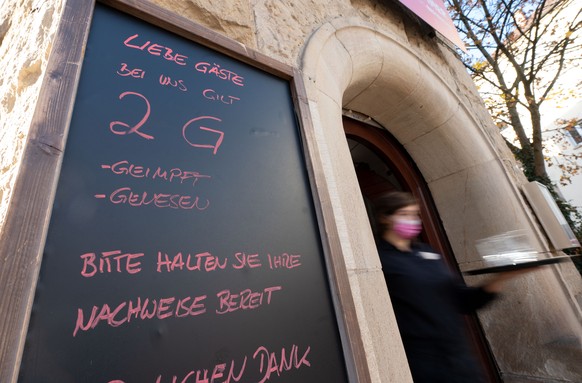 LIEBE GÄSTE
BEI UNS GILT
2 G
-GEIMPFT
-GENESEN
BITTE HALTEN SIE IHRE
NACHWEISE BEREIT
DANK